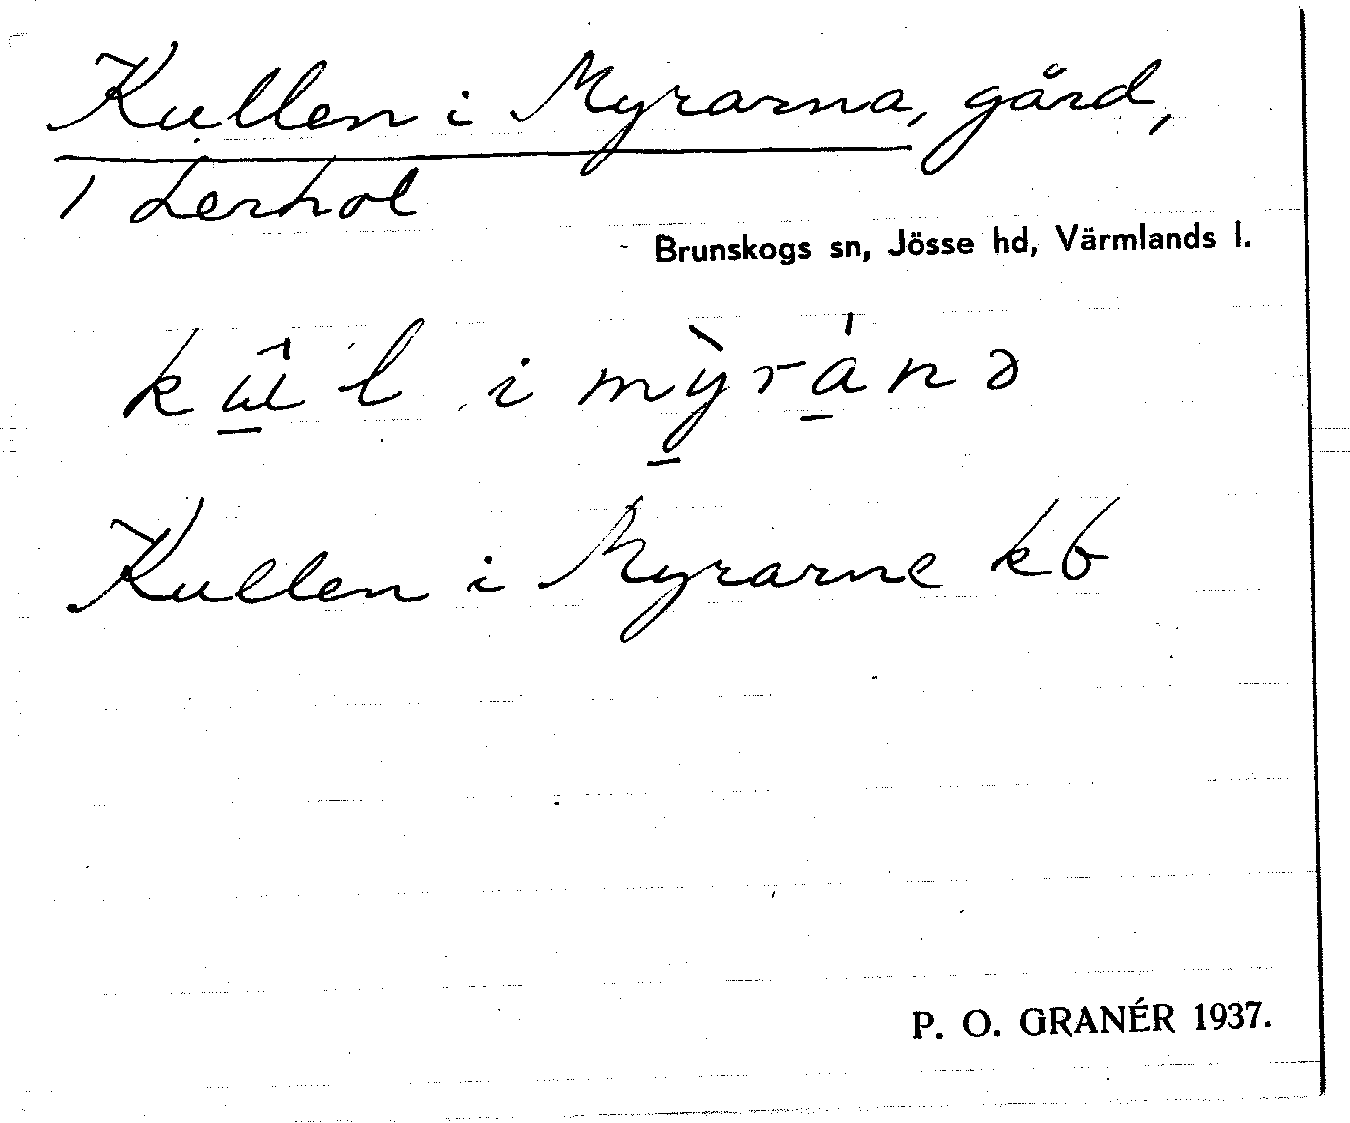 Kullen i Myrarna, gård,
1 Lerhol
Brunskogs sn, Jösse hd, Värmlands l.
i
Kullen i Myrarne kb
P. O. GRANÉR 1937.